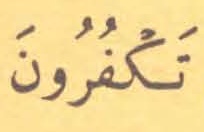 تَكْفُرُونَ